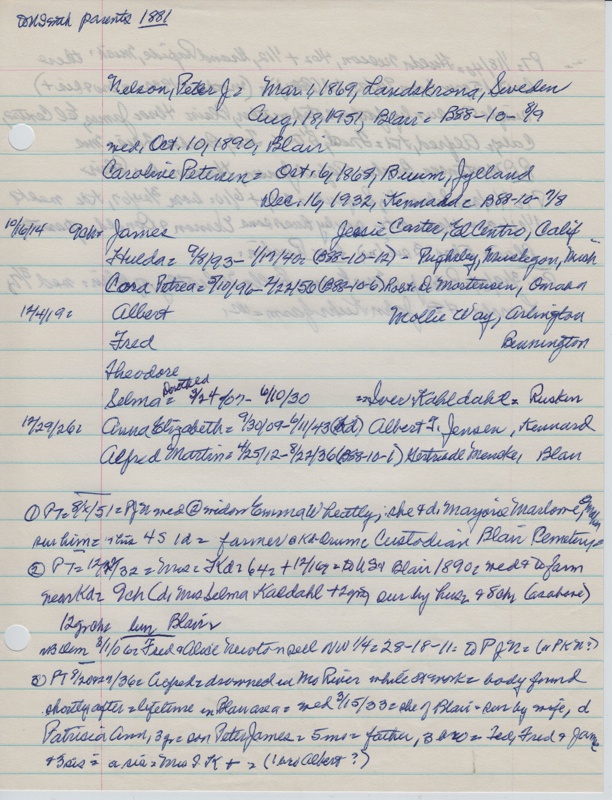 parents 1881
Nelson, Peter J = Mar. 1, 1869, Landskrona, Sweden
Aug. 18, 1951, Blair = B88-10-8/9
med. Oct. 10, 1890, Blair
Caroline Petersen = Oct. 16, 1868, Jylland
Dec. 16, 1932, Kennard = B88-10-7/8
10/16/14 9ch = James Jessie Carter, El Centro, Calif
Hulda = 9/8/93 - 1/17/40 = (B88-10-12) - Pughsley, Muskegon, Mich
Cora Petrea = 5/10/96 - 2/22/56 (B88-10-6) Robt. D. Mortensen, Omaha
12/4/19 = Albert Mollie Way, Arlington
Fred Bennington
Theodore
Selma Dorothea = 3/24/07 - 6/10/30 = Iver Kahldahl = Ruskin
12/29/26 = Anna Elizabeth = 9/30/09 - 6/11/43 (Kd) Albert T. Jensen, Kennard
Alfred Martin = 4/25/12 - 8/22/36 (B88-10-1) Gertrude Mencke, Blair
① PT = 51 = PJN med @ widow Emma Wheatly; she & d. Marjorie Marlowe,
sur him = 45 ld = farmer Custodian Blair Cemetery
② PT = 32 = Mrs = Kd = 64 = + 12/16 = Blair 1890; med & to farm
near Kd = 9ch (d. Mrs Selma Kaldahl + sur by husz & 8ch (as above)
12 Blair
Fred & Alice Newton sell NW 1/4 = 28-18-11 = to PJN = (or PKN?)
3) PT 36 = Alfred = drowned in Mo River while at work = body found
shortly after = lifetime in Blair area = med 3/15/33 = she of Blair = sur by wife, d
Patrisia Ann, 3y = son Peter James = 5mo = father, 3 bro = Ted, Fred & Jame
+ 3 sis = a sis = Mrs I. K + = (1 bro Albert?)